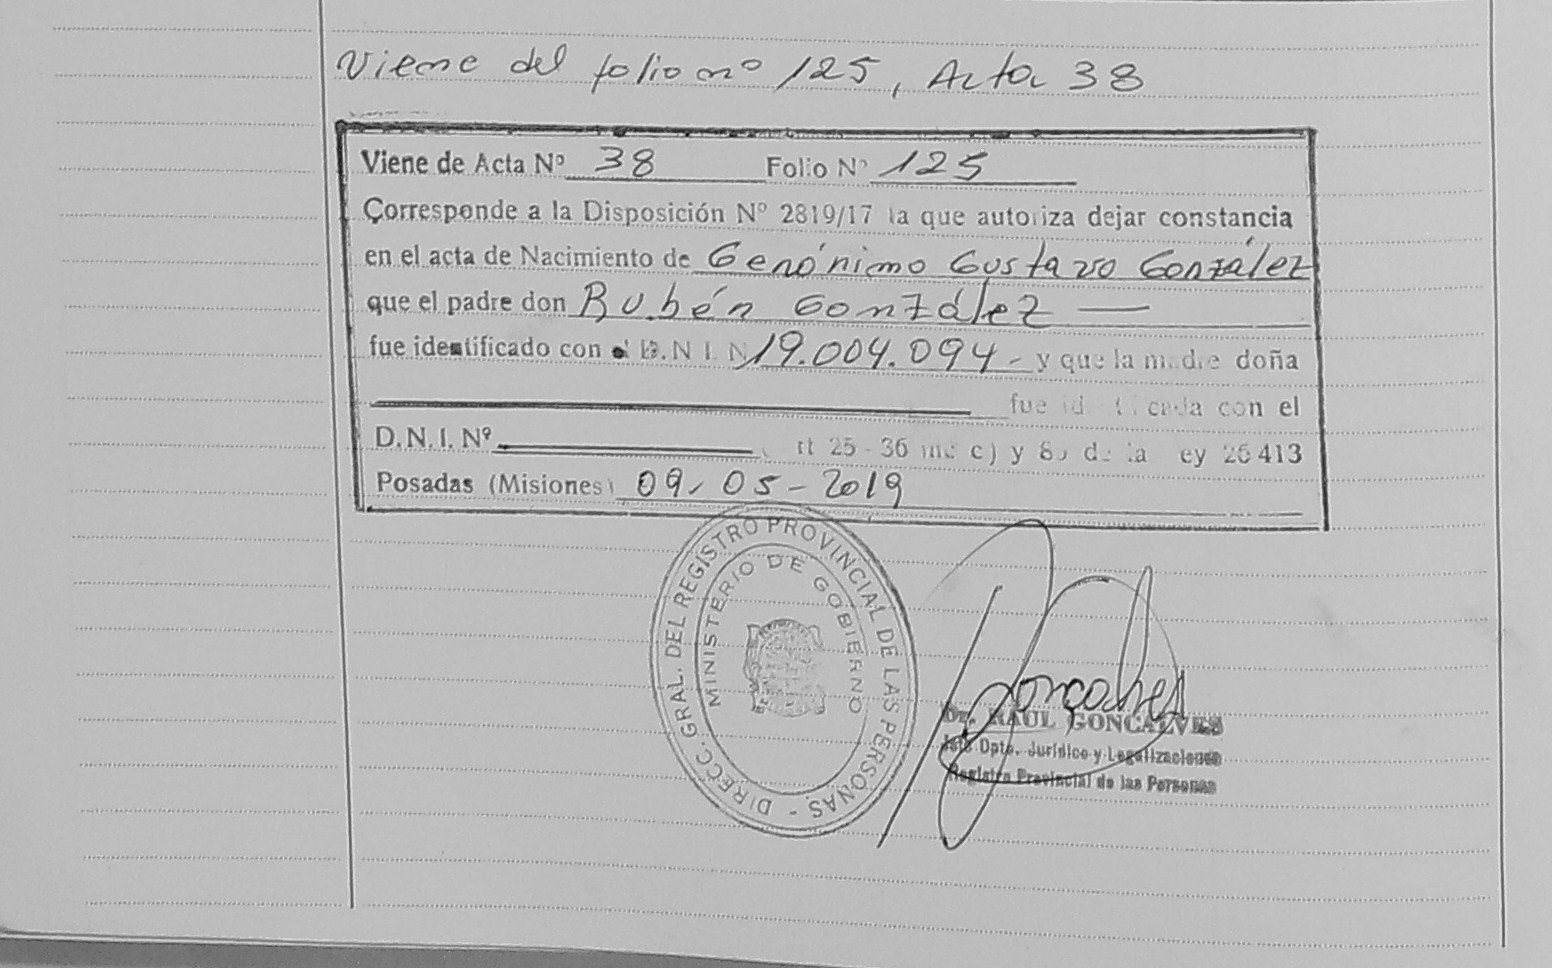 Viene del folio nº 125, Acta 38
Viene de Acta Nº 38 Folio Nº 125
Corresponde a la Disposición Nº 2819/17 la que autoriza dejar constancia
en el acta de Nacimiento de Gerónimo Gustavo González
que el padre don Rubén González —
fue identificado con el D.N.I. N 19.004.094 - y que la madre doña
fue identificada con el
D.N.I. Nº rt 25 - 36 inc c) y 85 de la ey 26413
Posadas (Misiones) 09-05-2019
DIRECC. GRAL. DEL REGISTRO PROVINCIAL DE LAS PERSONAS -
MINISTERIO DE GOBIERNO
Dr. RAUL GONCALVES
Jefe Dpto. Jurídico y Legalizaciones
Registro Provincial de las Personas